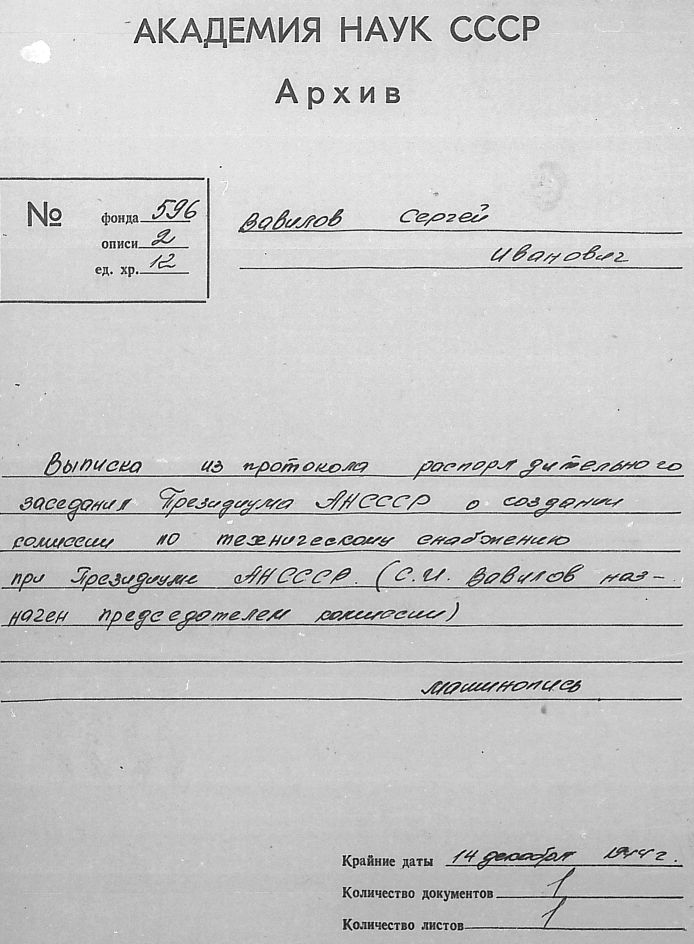 АКАДЕМИЯ НАУК СССР
Архив
№
фонда 596
описи 2
ед. хр. 12
Вавилов Сергей
Иванович
Выписка из протокола распорядительного
заседания Президиума АН СССР о создании
комиссии по техническому снабжению
при Президиуме АН СССР. (С.И. Вавилов наз-
начен председателем комиссии)
машинопись
Крайние даты 14 декабря 1944 г.
Количество документов 1
Количество листов 1